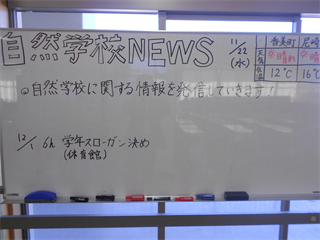 自然学校NEWS
11/22
(水)
香美町 尼崎
天気 快晴 快晴
気温 12℃ 16℃
◎自然学校に関する情報を発信していきます！
12/1 6h 学年スローガン決め
(体育館)